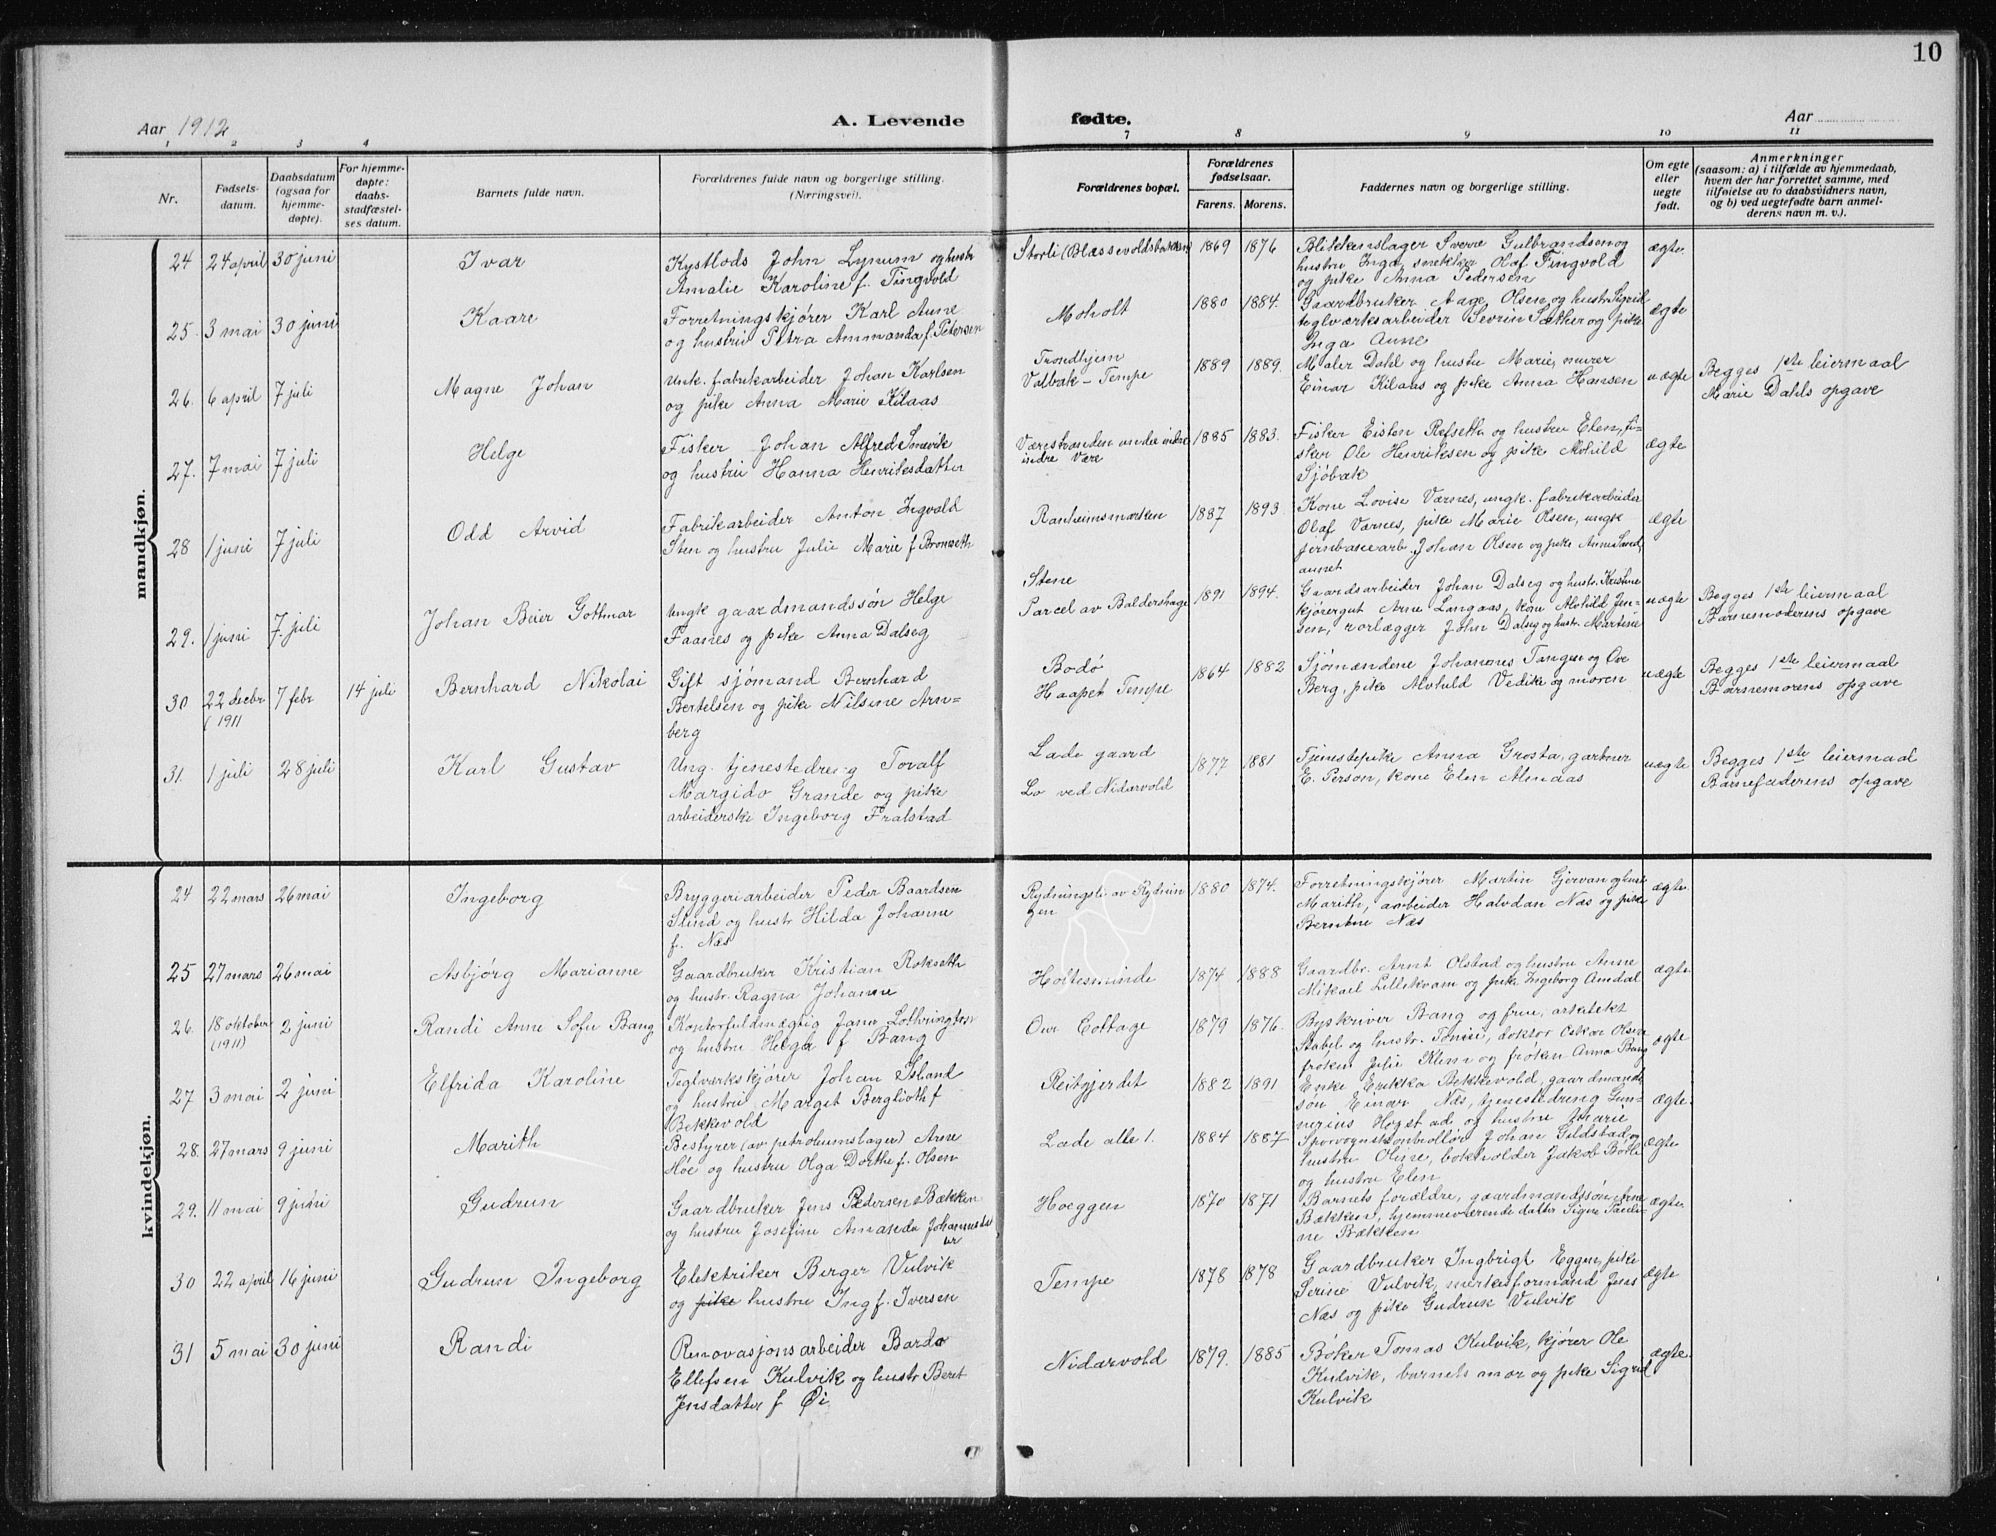 10
Aar 1912
A. Levende fødte.
Aar
1 2 3 4 7 8 9 10 11
Nr.
Fødsels-
datum.
Daabsdatum
(ogsaa for
hjemme-
døpte).
For hjemme-
døpte:
daabs-
stadfæstel-
ses datum.
Barnets fulde navn.
Forældrenes fulde navn og borgerlige stilling.
(Næringsvei).
Forældrenes bopæl.
Forældrenes
fødselsaar.
Farens. Morens.
Faddernes navn og borgerlige stilling.
Om egte
eller
uegte
født.
Anmerkninger
(saasom: a) i tilfælde av hjemmedaab,
hvem der har forrettet samme, med
tilføielse av to daabsvidners navn,
og b) ved uegtefødte barn anmel-
derens navn m. v.).
mandkjøn.
24 24 april 30 juni Ivar
Kystlods John Lynum og hustr
Amalie Karoline f. Tingvold
Storli 1869 1876
Blikkenslager Sverre Gulbrandsen og
hustru Inga, snekker Olaf Tingvold
og pike Anna Pedersen
ægte
25. 3 mai 30 juni Kaare
Forretningskjører Karl Aune
og hustru Petra Ammanda f. Pedersen
Moholt 1880 1884.
Gaardbruker Aage Olsen og hustr. Sigrid
teglværksarbeider Sevrin Sæther og pike
Inga Aune
ægte
26. 6 april 7 juli Magne Johan
Unk. fabrikarbeider Johan Karlsen
og pike Anna Marie Kilaas
Trondhjem
Valbak - Tempe
1889 1889.
Maler Dahl og hustu Marie, murer
Einar Kilaas og pike Anna Hansen
uægte
Begges 1ste leiermaal
Marie Dahls opgave
27. 7 mai 7 juli Helge
Fisker Johan Alfred Snevik
og hustru Hanna Henriksdatter
Værestranden under indre
indre Være
1885 1883.
Fisker Eisten Refseth og hustru Elen, fi-
sker Ole Henriksen og pike Alvhild
Sjöbak
ægte
28 1 juni 7 juli Odd Arvid
Fabrikarbeider Anton Ingvald
Sten og hustru Julie Marie f Bromseth
Ranheimsmarken 1887 1893
Kone Lovise Værnes, ungk. fabrikarbeider
Olaf Værnes, pike Marie Olsen, ungk
jernbanearb. Johan Olsen og pike Anna Sand,
aunet
ægte
29. 1 juni 7 juli Johan Beier Gottmar
Ungk gaardmandssön Helge
Faanes og pike Anna Dalseg
Stene
Parcel av Baldershage
1891 1894.
Gaardsarbeider Johan Dalseg og hustr. Kristine
kjørergut Arne Langaas, kone Alvhild Jen-
sen, rorlægger John Dalseg og hustr. Martine
uægte
Begges 1ste leiermaal
Barnemoderens opgave
30 22 decbr 7 febr 14 juli Bernhard Nikolai
(1911
Gift sjömand Bernhard
Bertelsen og pike Nilsine Arn-
berg
Bodö
Haapet Tempe
1864 1882
Sjömændene Johannes Tangen og Ove
Berg, pike Alvhild Vedike og moren
uægte
Begges 1ste leiermaal
Barnemorens opgave
31. 1 juli 28 juli Karl Gustav
Ung. tjenestedreng Toralf
Margido Grande og pike
arbeiderske Ingeborg Fralstad
Lade gaard
Lo ved Nidarvold
1877 1881
Tjenestepike Anna Grosta, gartner
E. Person, kone Elen Almaas
uægte
Begges 1ste leiermaal
Barnefaderens opgave
kvindekjøn.
24 22 mars 26 mai Ingeborg
Bryggeriarbeider Peder Baardsen
Slind og hustr Hilda Johanne
f. Næs
Rydningsli av Rydnin
gen
1880 1874.
Forretningskjører Martin Gjervan og hustr
Marith, arbeider Halvdan Næs og pike
Berntine Næs
ægte
25 27 mars 26 mai Asbjørg Marianne
Gaardbruker Kristian Rokseth
og hustr. Ragna Johanne
Holtesminde 1874 1888
Gaardbr. Arnt Olstad og hustru Anne
Mikael Lillekvam og pike Ingeborg Amdal
ægte
26. 18 oktober 2 juni Randi Anne Sofie Bang
(1911)
Kontorfuldmægtig Jans Lothringten
og hustru Helga f Bang
Our Cottage 1879 1876.
Byskriver Bang og frue, arkitekt
Stabel og hustr. Tomine, doktor Oskar Olsen
fröken Julie Klem og fröken Anna Bang
ægte
27 3 mai 2 juni Elfrida Karoline
Teglværkskjører Johan Island
og hustru Marget Berglioth f
Bekkevold
Reitgjerdet 1882 1891
Enke Erikka Bekkevold, gaardmands
sön Einar Næs, tjenestedreng Lun-
nerius Hogstad og hustru Marie
ægte
28. 27 mars 9 juni Marith
Bestyrer (av petroleumslager) Arne
Høe og hustru Olga Dorthe f. Olsen
Lade alle 1. 1884 1887
Sporvognskontrollör Johan Gildstad og
hustru Oline, bokholder Jakob Botle
og hustru Elen
ægte
29. 11 mai 9 juni Gudrun
Gaardbruker Jens Pedersen Bækken
og hustru Josefine Amanda Johannesdat
Hoeggen 1870 1871
Barnets forældre, gaardmandssön Arne
Bækken, hjemmeværende datter Signe Pauli-
ne Bækken
ægte
30 22 april 16 juni Gudrun Ingeborg
Elektriker Birger Vulvik
og pike hustru Ing f. Iversen
Tempe 1878 1878
Gaardbruker Ingbrigt Eggen, pike
Serine Vulvik, merkesformand Jens
Næs og pike Gudrun Vulvik
ægte
31 5 mai 30 juni Randi
Renovasjonsarbeider Bardo
Ellefsen Kulvik og hustr Beret
Jensdatter f Øi
Nidarvold 1879. 1885
Böker Tomas Kulvik, kjører Ole
Kulvik, barnets mor og pike Sigrid
Kulvik
ægte.